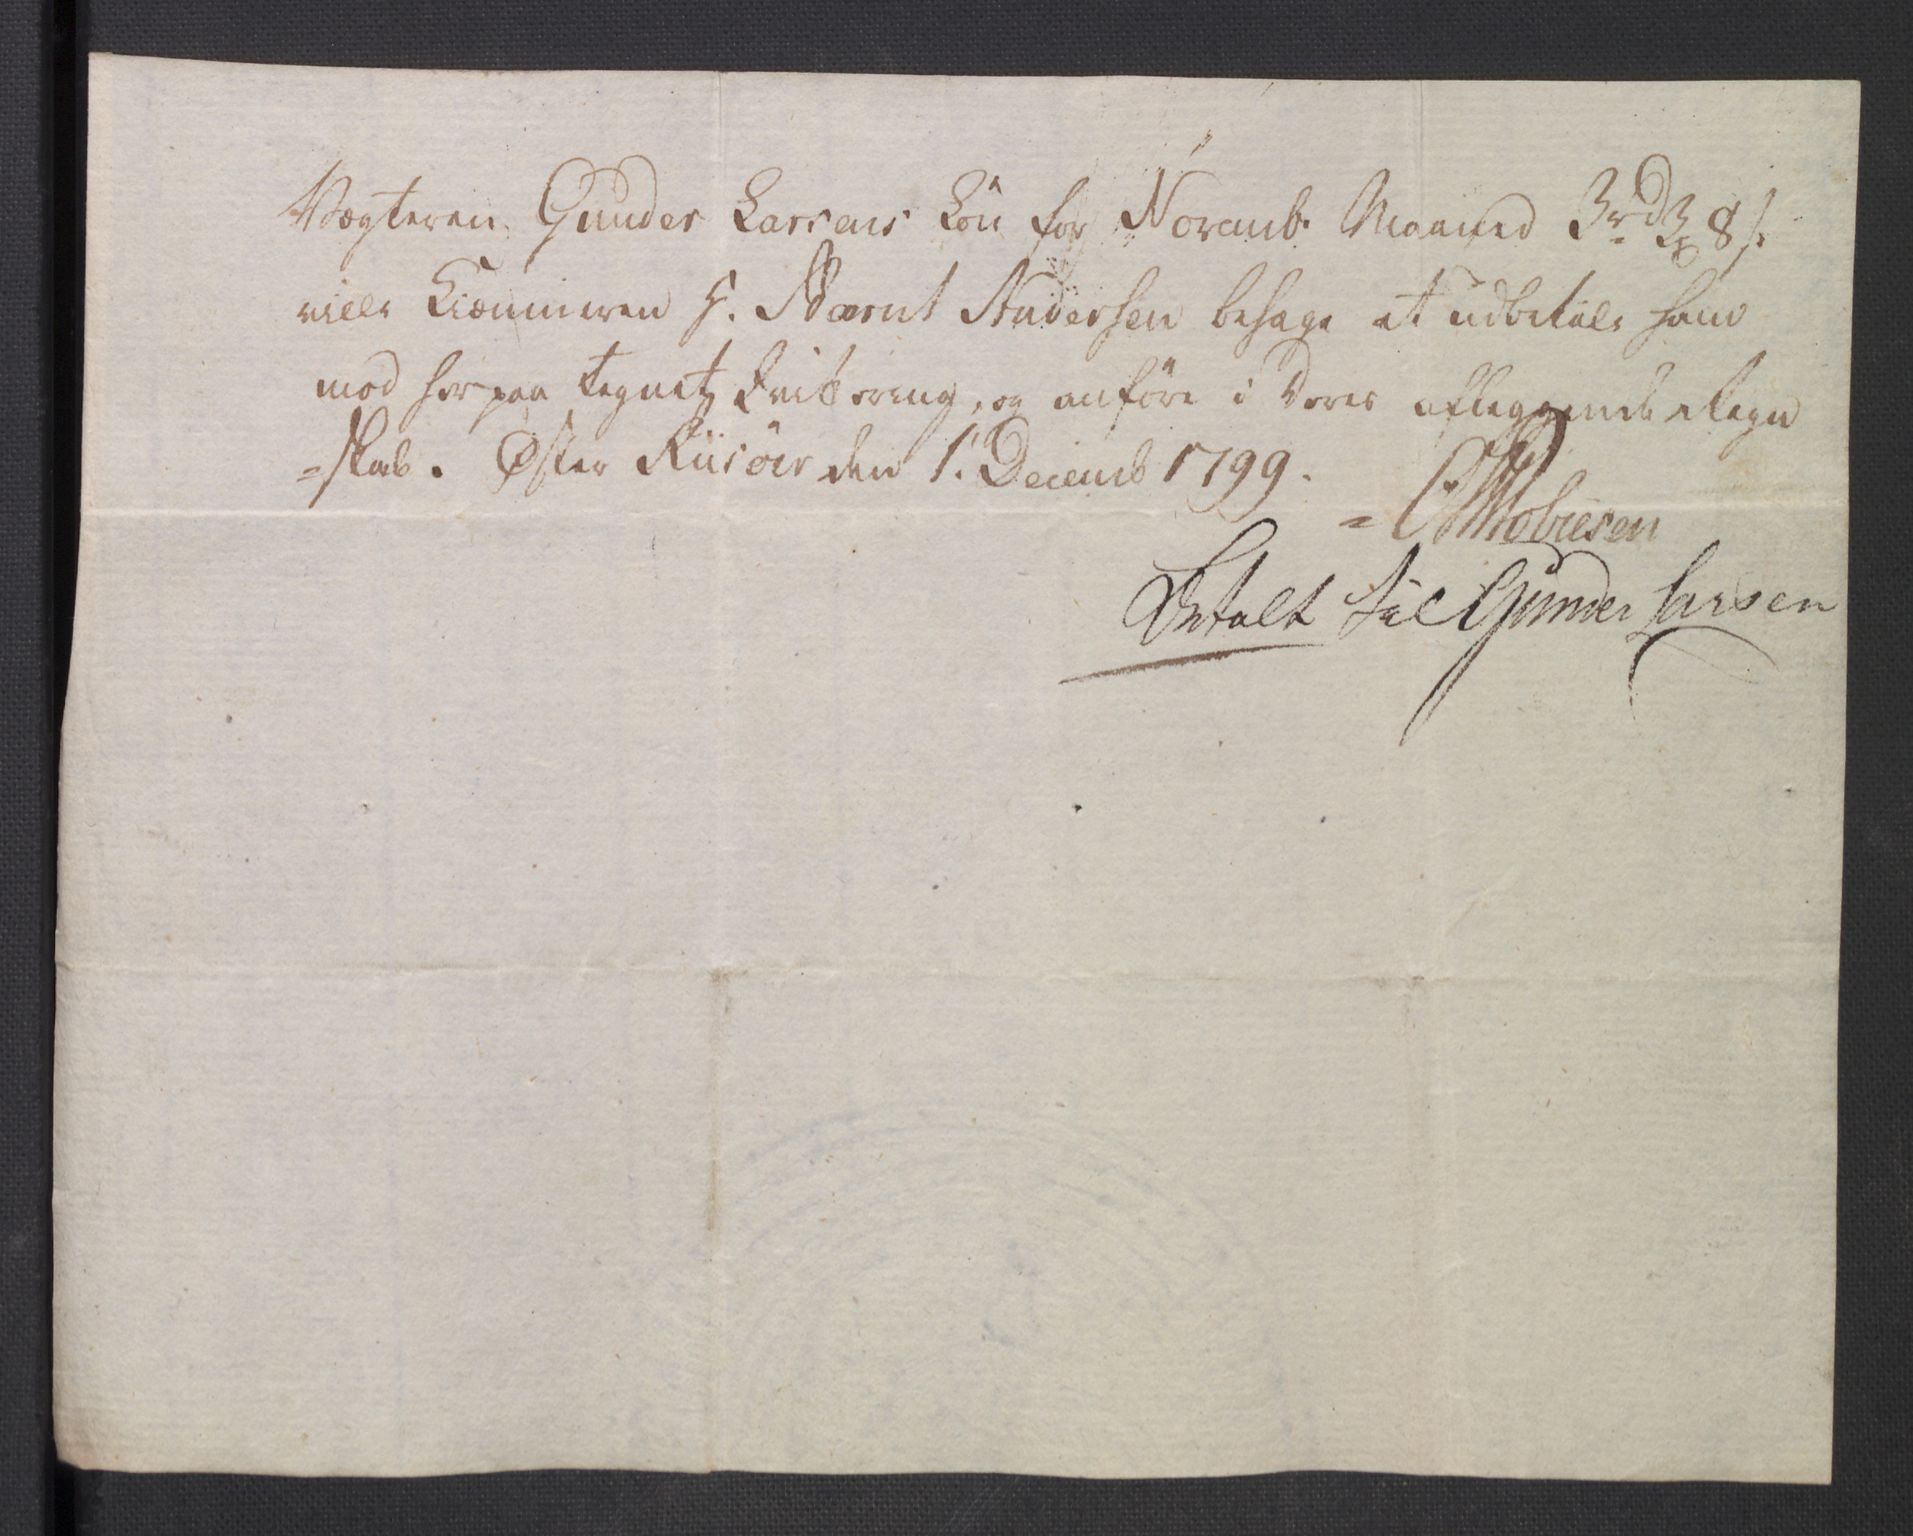 Vægteren Gunder Larsens Løn for Novemb. Maaned 3 rd 3 8 s.
ville Kiæmneren H. Bærnt Andersen behage at udbetale ham
mod her paa tegnet Qvittering, og anføre i deres aflæggende Regn
=skab. Øster Riisøer den 1. Decemb 1799.
Betalt til Gunder Larsen